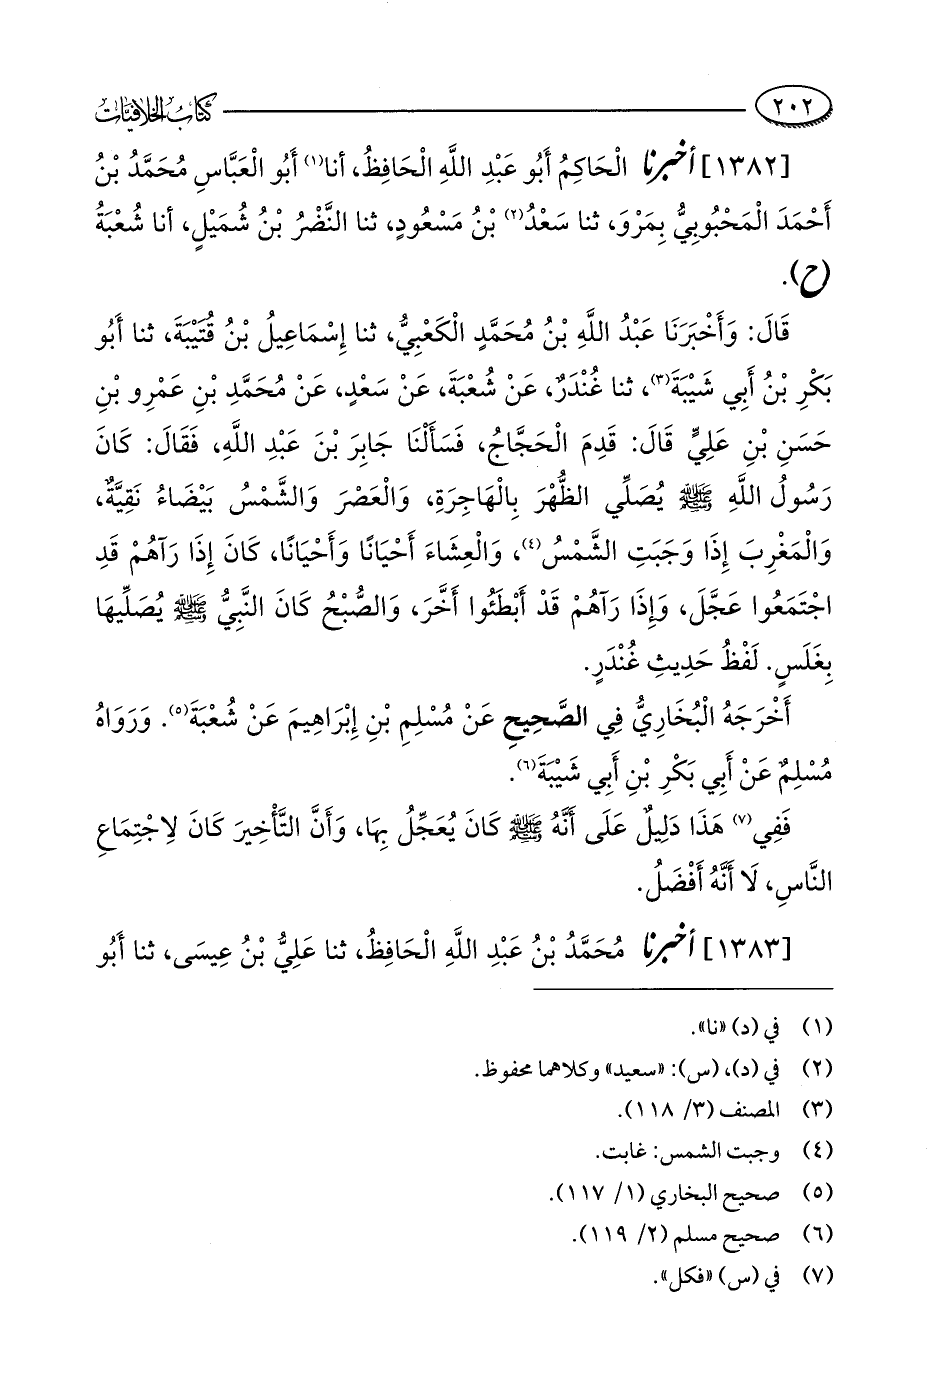 ٢٠٢ كتاب الخلافيات
[١٣٨٢] أخبرنا الْحَاكِمُ أَبُو عَبْدِ اللَّهِ الْحَافِظُ، أنا(١) أَبُو الْعَبَّاسِ مُحَمَّدُ بْنُ
أَحْمَدَ الْمَحْبُوبِيُّ بِمَرْوَ، ثنا سَعْدُ(٢) بْنُ مَسْعُودٍ، ثنا النَّضْرُ بْنُ شُمَيْلٍ، أنا شُعْبَةُ
(ح).
قَالَ: وَأَخْبَرَنَا عَبْدُ اللَّهِ بْنُ مُحَمَّدٍ الْكَعْبِيُّ، ثنا إِسْمَاعِيلُ بْنُ قُتَيْبَةَ، ثنا أَبُو
بَكْرِ بْنُ أَبِي شَيْبَةَ(٣)، ثنا غُنْدَرٌ، عَنْ شُعْبَةَ، عَنْ سَعْدٍ، عَنْ مُحَمَّدِ بْنِ عَمْرِو بْنِ
حَسَنِ بْنِ عَلِيٍّ قَالَ: قَدِمَ الْحَجَّاجُ، فَسَأَلْنَا جَابِرَ بْنَ عَبْدِ اللَّهِ، فَقَالَ: كَانَ
رَسُولُ اللَّهِ ﷺ يُصَلِّي الظُّهْرَ بِالْهَاجِرَةِ، وَالْعَصْرَ وَالشَّمْسُ بَيْضَاءُ نَقِيَّةٌ،
وَالْمَغْرِبَ إِذَا وَجَبَتِ الشَّمْسُ(٤)، وَالْعِشَاءَ أَحْيَانًا وَأَحْيَانًا، كَانَ إِذَا رَآهُمْ قَدِ
اجْتَمَعُوا عَجَّلَ، وَإِذَا رَآهُمْ قَدْ أَبْطَئُوا أَخَّرَ، وَالصُّبْحُ كَانَ النَّبِيُّ ﷺ يُصَلِّيهَا
بِغَلَسٍ. لَفْظُ حَدِيثِ غُنْدَرٍ.
أَخْرَجَهُ الْبُخَارِيُّ فِي الصَّحِيحِ عَنْ مُسْلِمِ بْنِ إِبْرَاهِيمَ عَنْ شُعْبَةَ(٥). وَرَوَاهُ
مُسْلِمٌ عَنْ أَبِي بَكْرِ بْنِ أَبِي شَيْبَةَ(٦).
فَفِي(٧) هَذَا دَلِيلٌ عَلَى أَنَّهُ ﷺ كَانَ يُعَجِّلُ بِهَا، وَأَنَّ التَّأْخِيرَ كَانَ لِاجْتِمَاعِ
النَّاسِ، لَا أَنَّهُ أَفْضَلُ.
[١٣٨٣] أخبرنا مُحَمَّدُ بْنُ عَبْدِ اللَّهِ الْحَافِظُ، ثنا عَلِيُّ بْنُ عِيسَى، ثنا أَبُو
(١) في (د) «نا».
(٢) في (د)، (س): «سعيد» وكلاهما محفوظ.
(٣) المصنف (٣/ ١١٨).
(٤) وجبت الشمس: غابت.
(٥) صحيح البخاري (١/ ١١٧).
(٦) صحيح مسلم (٢/ ١١٩).
(٧) في (س) «فكل».